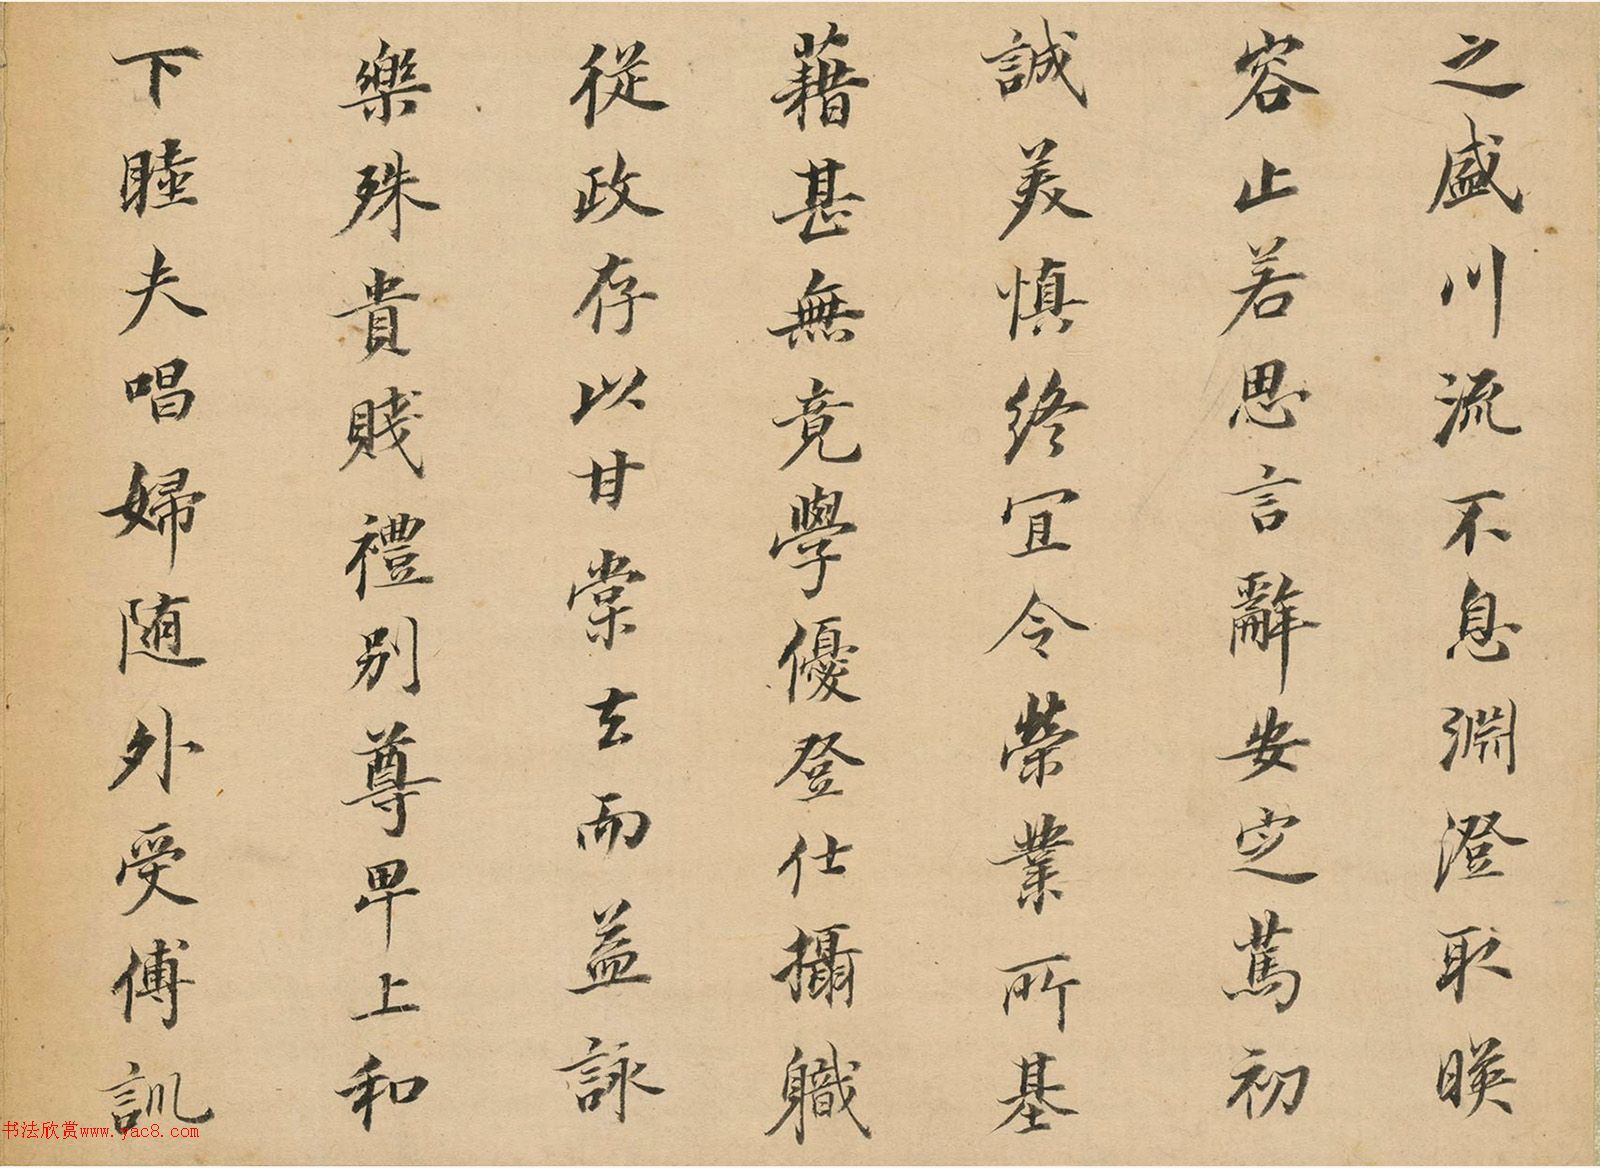 之盛川流不息淵澄取暎
容止若思言辭安定篤初
誠美慎終宜令榮業所基
藉甚無竟學優登仕攝職
從政存以甘棠去而益詠
樂殊貴賤禮別尊卑上和
下睦夫唱婦随外受傅訓
书法欣赏www.yac8.com